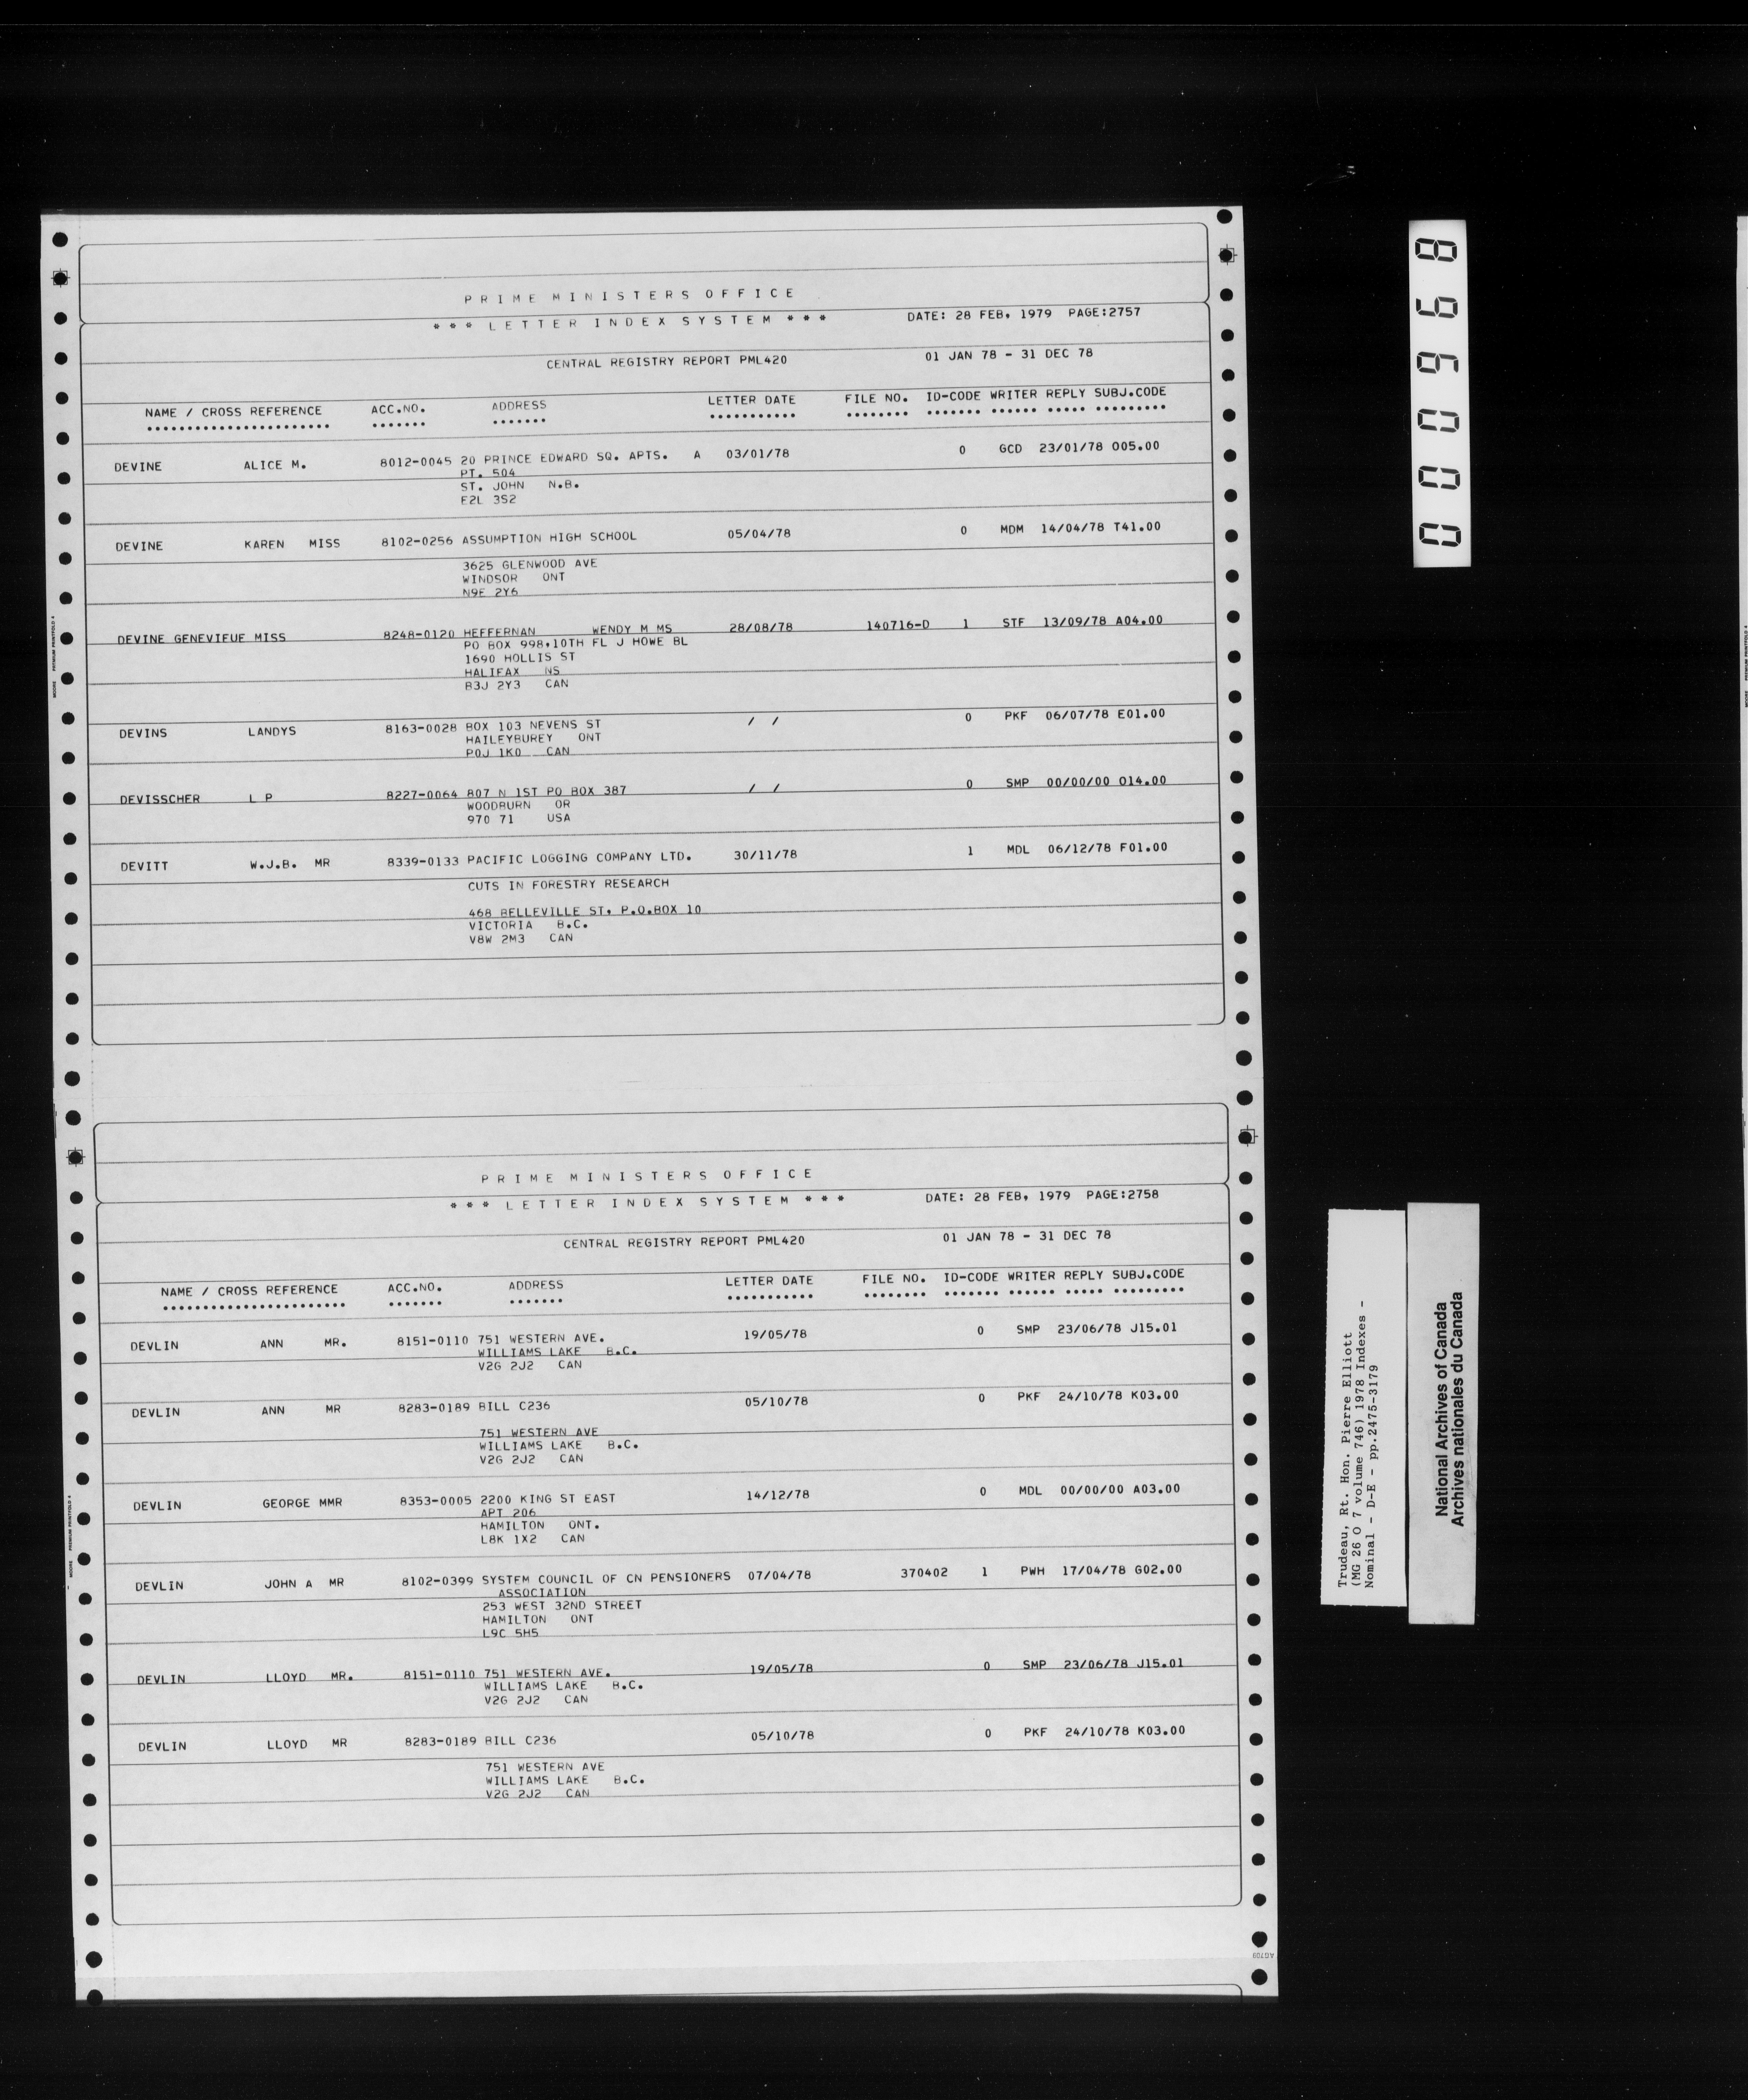 PRIME MINISTERS OFFICE
*** LETTER INDEX SYSTEM *** DATE: 28 FEB, 1979 PAGE:2757
CENTRAL REGISTRY REPORT PML420 01 JAN 78 - 31 DEC 78
NAME / CROSS REFERENCE ACC.NO. ADDRESS LETTER DATE FILE NO. ID-CODE WRITER REPLY SUBJ.CODE
DEVINE ALICE M. 8012-0045 20 PRINCE EDWARD SQ. APTS. A 03/01/78 0 GCD 23/01/78 O05.00
PT. 504
ST. JOHN N.B.
E2L 3S2
DEVINE KAREN MISS 8102-0256 ASSUMPTION HIGH SCHOOL 05/04/78 0 MDM 14/04/78 T41.00
3625 GLENWOOD AVE
WINDSOR ONT
N9E 2Y6
DEVINE GENEVIEUE MISS 8248-0120 HEFFERNAN WENDY M MS 28/08/78 140716-D 1 STF 13/09/78 A04.00
PO BOX 998,10TH FL J HOWE BL
1690 HOLLIS ST
HALIFAX NS
B3J 2Y3 CAN
DEVINS LANDYS 8163-0028 BOX 103 NEVENS ST / / 0 PKF 06/07/78 E01.00
HAILEYBUREY ONT
P0J 1K0 CAN
DEVISSCHER L P 8227-0064 807 N 1ST PO BOX 387 / / 0 SMP 00/00/00 O14.00
WOODBURN OR
970 71 USA
DEVITT W.J.B. MR 8339-0133 PACIFIC LOGGING COMPANY LTD. 30/11/78 1 MDL 06/12/78 F01.00
CUTS IN FORESTRY RESEARCH
468 BELLEVILLE ST. P.O.BOX 10
VICTORIA B.C.
V8W 2M3 CAN
PRIME MINISTERS OFFICE
*** LETTER INDEX SYSTEM *** DATE: 28 FEB, 1979 PAGE:2758
CENTRAL REGISTRY REPORT PML420 01 JAN 78 - 31 DEC 78
NAME / CROSS REFERENCE ACC.NO. ADDRESS LETTER DATE FILE NO. ID-CODE WRITER REPLY SUBJ.CODE
DEVLIN ANN MR. 8151-0110 751 WESTERN AVE. 19/05/78 0 SMP 23/06/78 J15.01
WILLIAMS LAKE B.C.
V2G 2J2 CAN
DEVLIN ANN MR 8283-0189 BILL C236 05/10/78 0 PKF 24/10/78 K03.00
751 WESTERN AVE
WILLIAMS LAKE B.C.
V2G 2J2 CAN
DEVLIN GEORGE MMR 8353-0005 2200 KING ST EAST 14/12/78 0 MDL 00/00/00 A03.00
APT 206
HAMILTON ONT.
L8K 1X2 CAN
DEVLIN JOHN A MR 8102-0399 SYSTEM COUNCIL OF CN PENSIONERS 07/04/78 370402 1 PWH 17/04/78 G02.00
ASSOCIATION
253 WEST 32ND STREET
HAMILTON ONT
L9C 5H5
DEVLIN LLOYD MR. 8151-0110 751 WESTERN AVE. 19/05/78 0 SMP 23/06/78 J15.01
WILLIAMS LAKE B.C.
V2G 2J2 CAN
DEVLIN LLOYD MR 8283-0189 BILL C236 05/10/78 0 PKF 24/10/78 K03.00
751 WESTERN AVE
WILLIAMS LAKE B.C.
V2G 2J2 CAN
000968
Trudeau, Rt. Hon. Pierre Elliott
(MG 26 O 7 volume 746) 1978 Indexes -
Nominal - D-E - pp.2475-3179
National Archives of Canada
Archives nationales du Canada